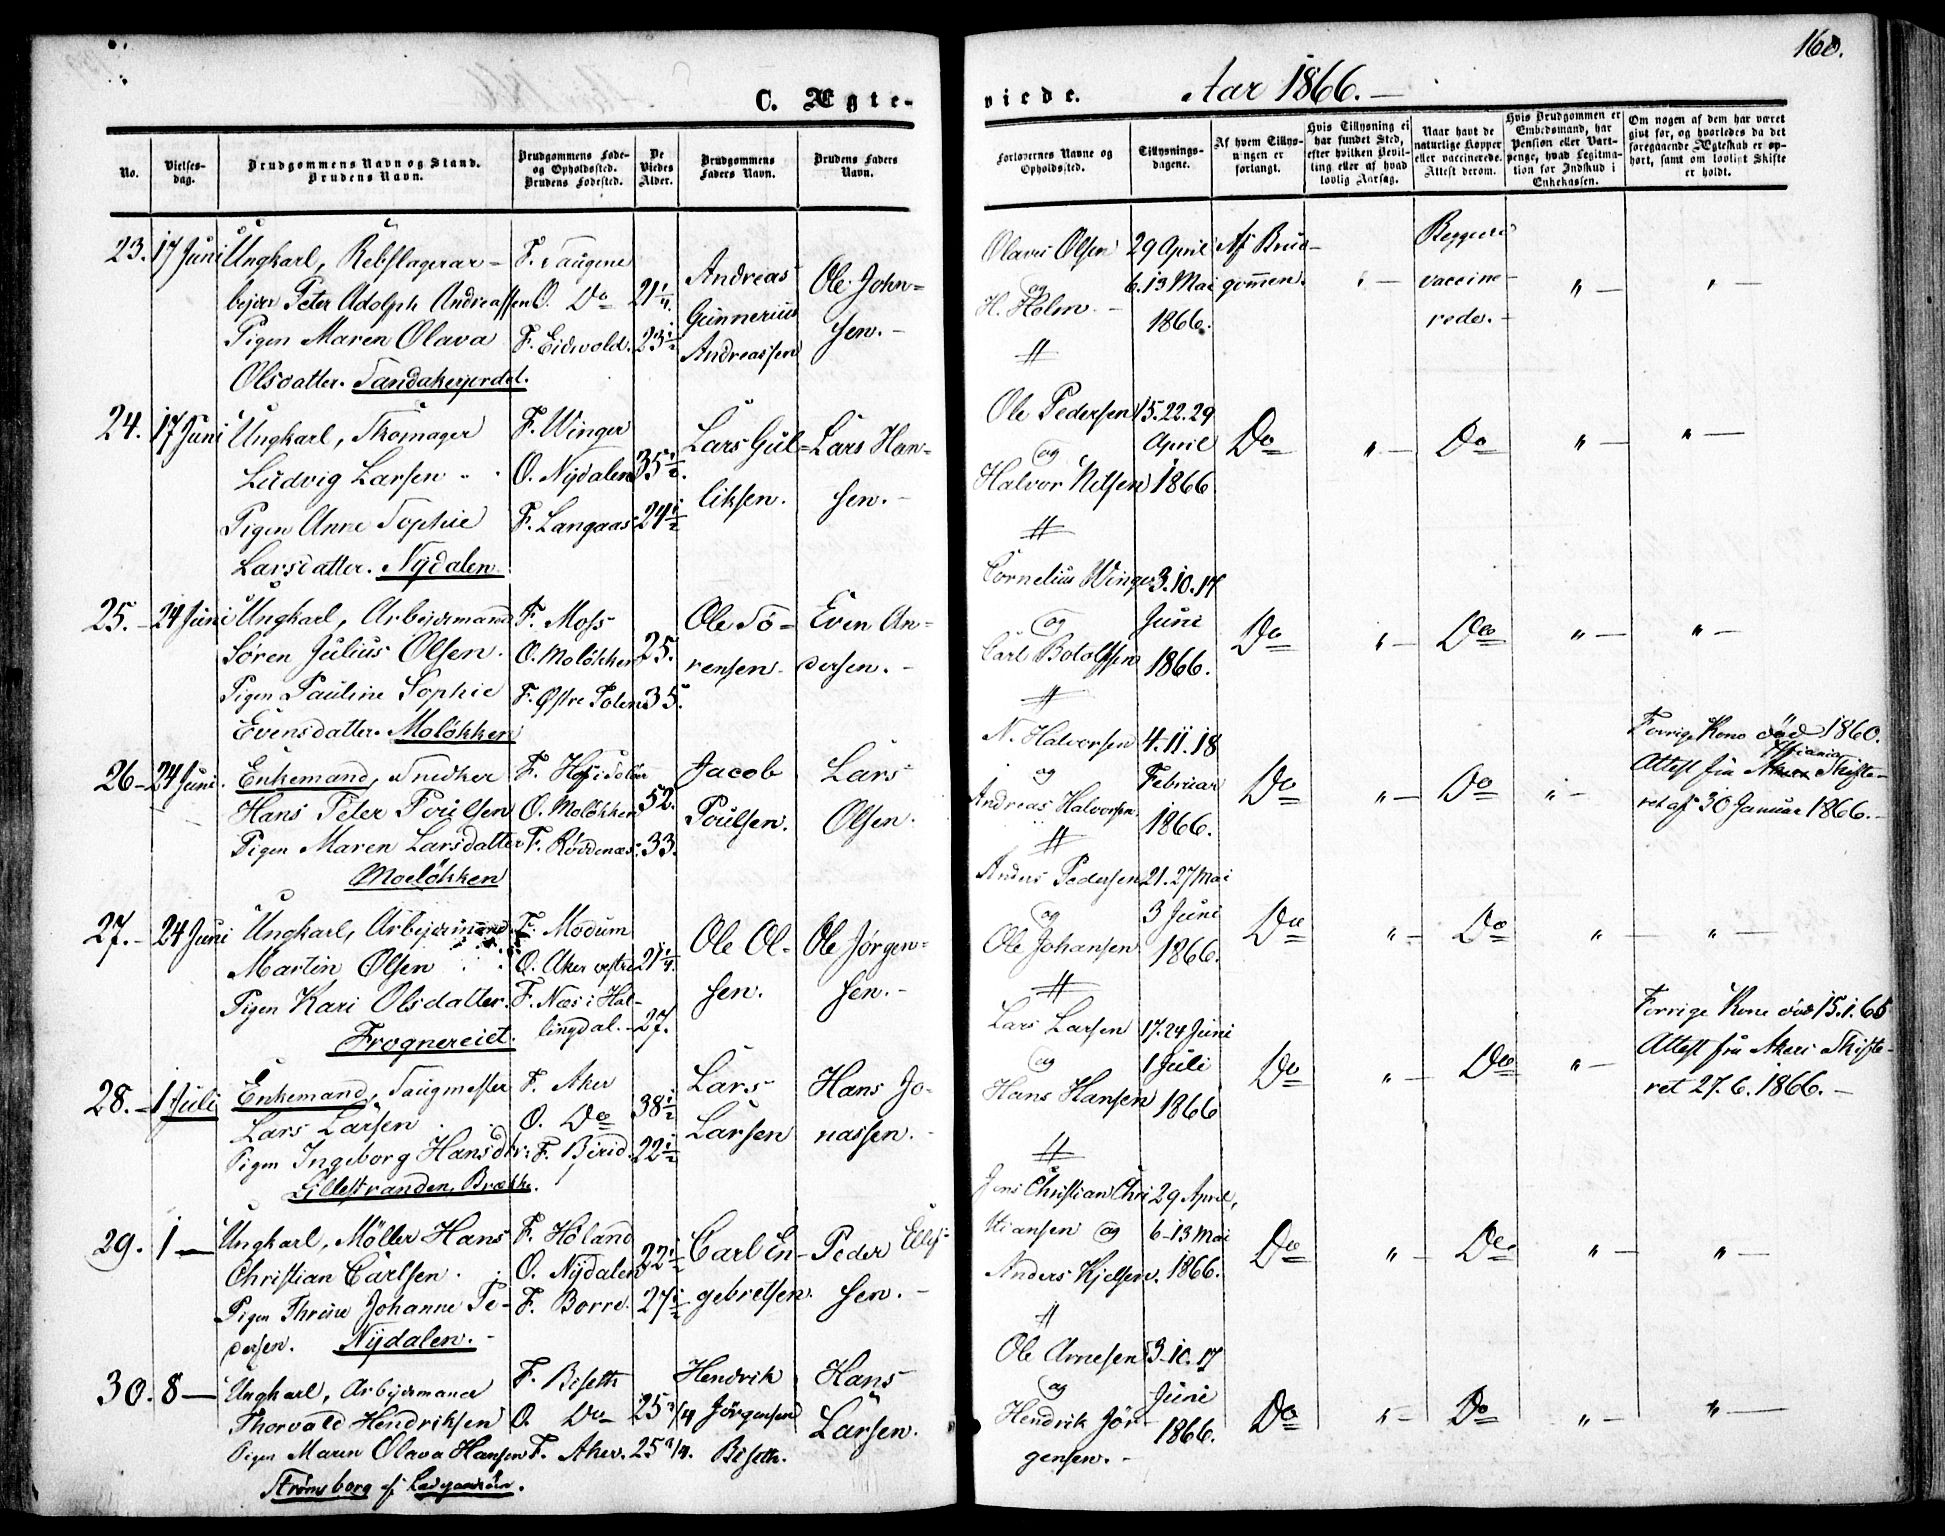 160.
C. Ægte-
viede.
Aar 1866.
No.
Vielses-
dag.
Brudgommens Navn og Stand.
Brudens Navn.
Brudgommens Føde-
og Opholdssted.
Brudens Fødested.
De
Viedes
Alder.
Brudgommens
Faders Navn.
Brudens Faders
Navn.
Forlovernes Navne og
Opholdssted.
Tillysnings-
dagene.
Af hvem Tillys-
ningen er
forlangt.
Hvis Tillysning ei
har fundet Sted,
efter hvilken Bevil-
ling eller af hvad
lovlig Aarsag.
Naar havt de
naturlige Kopper
eller vaccinerede.
Attest derom.
Hvis Brudgommen er
Embedsmand, har
Pension eller Vart-
penge, hvad Legitima-
tion for Indskud i
Enkekassen.
Om nogen af dem har været
givt før, og hvorledes da det
foregaaende Ægteskab er op-
hørt, samt om lovligt Skifte
er holdt.
23. 17 Juni
Ungkarl, Rebslagerar-
beider Peter Adolph Andreassen
Pigen Maren Olava
Olsdatter. Sandakerjordet.
F. Saugene
O. Do
F. Eidsvold.
21 1/4
23 1/2
Andreas
Gunnerius
Andreassen
Ole John-
sen.
Olaves Olsen
og
H. Holm.
29 April
6. 13 Mai
1866.
Af Brud-
gommen.
Begge
vaccine-
rede.
24. 17 Juni
Ungkarl, Skomager
Ludvig Larsen
Pigen Anne Sophie
Larsdatter. Nydalen.
F. Winger
O. Nydalen
F. Langaas
35 1/2.
24 1/2
Lars Gul-
liksen.
Lars Han-
sen.
Ole Pedersen
og
Halvor Nilsen
15. 22. 29
April
1866
Do
Do
25. 24 Juni
Ungkarl, Arbeidsmand
Søren Julius Olsen.
Pigen Pauline Sophie
Evensdatter. Moløkken
F. Moss
O. Moløkken
F. Østre Toten
25.
35.
Ole Sø-
rensen
Even An-
dersen.
Cornelius Winge
og
Carl Boloffsen
3. 10. 17
Juni
1866.
Do
Do
26 24 Juni.
Enkemand, Snedker
Hans Peter Poulsen
Pigen Maren Larsdatter
Moeløkken
F. Hof i Solør
O. Moløkken
F. Røddenæs
52.
33.
Jacob
Poulsen.
Lars
Olsen.
N. Halvorsen
og
Andreas Halvorsen.
4. 11. 18
Februar
1866.
Do
Do
Forrige Kone død 1860.
Attest fra Skifte-
ret af 30 Januar 1866.
27. 24 Juni
Ungkarl, Arbeidsmand
Martin Olsen
Pigen Kari Olsdatter.
Frognereiet.
F. Modum
O. Aker vestre
F. Næs i Hal-
lingdal.
21 1/4.
27.
Ole Ol-
sen.
Ole Jørgen-
sen.
Anders Pedersen
og
Ole Johansen.
21. 27 Mai
3 Juni
1866.
Do
Do
28. 1 Juli
Enkemand, Saugmester
Lars Larsen
Pigen Ingeborg Hansdtr.
Lillestranden, Brække.
F. Aker
O. Do
F. Birid.
38 1/2
22 1/2
Lars
Larsen
Hans Jo-
nassen.
Lars Larsen
og
Hans Hansen
17. 24 Juni
1 Juli
1866
Do
Do
Forrige Kone død 15. 1. 65
Attest fra Akers Skifte-
ret 27. 6. 1866.
29. 1
Ungkarl, Møller Hans
Christian Carlsen.
Pigen Thrine Johanne Pe-
dersen. Nydalen.
F. Høland
O. Nydalen
F. Borre.
22 1/2
27 1/2
Carl En-
gebretsen.
Peder Ellef-
sen.
Jens Christian Chri
stiansen og
Anders Kjelsen.
29 April,
6-13 Mai
1866.
Do
Do
30. 8
Ungkarl, Arbeidsmand
Thorvald Hendriksen
Pigen Maren Olava Hansen
Strømsborg
F. Biseth
O. Do
F. Aker.
25 3/4
25 3/4.
Hendrik
Jørgensen
Biseth.
Hans
Larsen.
Ole Arnesen
og
Hendrik Jør-
gensen.
3-10. 17
Juni
1866.
Do
Do